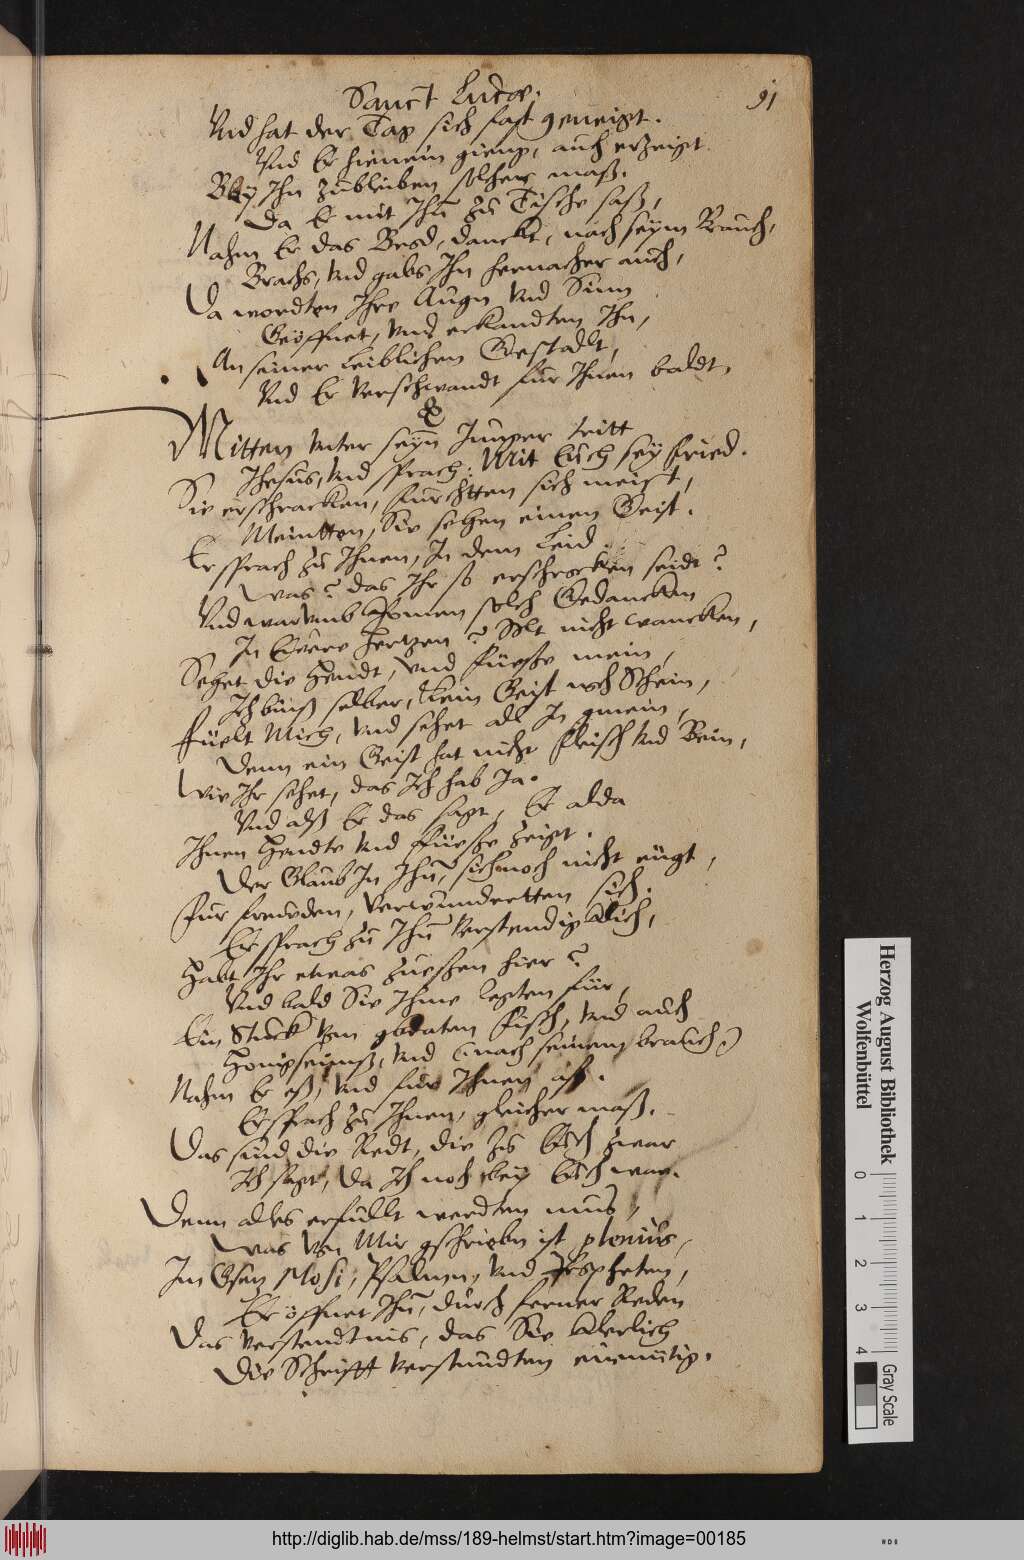 Sanct Lucæ.
91
Vnd hat der Tag sich fast geneigt.
Vnd Er hienein gieng, auch erzeigt
Bey Ihn zubleiben solcher maß.
Da Er mit Ihn zu Tische saß,
Nahm Er das Brod, danckt, nach seym Brauch,
Brachs, vnd gabs Ihn hernacher auch,
Da wordten Ihre Augn vnd Sinn
Geöffnet, vnd erkandten Ihn,
An seiner Leiblichen Gestallt,
Vnd Er verschwandt für Ihnen baldt.
Mitten vnter seyn Junger tritt
Jhesus, vnd sprach: Mit Euch sey fried.
Sie erschracken, furchtten sich meist,
Meintten, Sie sehen einen Geist.
Er sprach zu Ihnen, In dem Leid
Was? das Ihr so erschrocken seidt?
Vnd warumb komen solch Gedancken
In Ewre Hertzen? Solt nicht wancken,
Sehet die Hendt, vnd Füeße mein,
Ich binß selber, kein Geist noch Schein,
Füelt Mich, vnd sehet all In gmein,
Denn ein Geist hat nicht Fleisch vnd Bein,
Wie Ihr sehet, das Ich hab Ja.
Vnd alß Er das sagt, Er alda
Ihnen Hendte vnd Füeße zeigt.
Der Glaub In Ihn, sich noch nicht eügt,
Für freuden, verwundretten sich.
Er sprach zu Ihn verstendiglich,
Habt Ihr etwas zueßen hier?
Vnd bald Sie Ihme legten für,
Ein Stück von gbraten Fisch, vnd auch
Honigseimß, vnd (nach seinem brauch)
Nahm Er eß, vnd für Ihnen aß.
Er sprach zu Ihnen, gleicher maß.
Das sind die Redt, die zu Euch zwar
Ich sagt, da Ich noch bey Euch war.
Denn alles erfüllt werdten mus,
Was von Mir gschriebn ist plenius,
Im Gsetz Mosi, Psalmen, vnd Propheten,
Er öffnet Ihn, durch ferner Reden
Das verstendtnis, das Sie klerlich
Die Schrifft verstundten einmütig.
Herzog August Bibliothek
Wolfenbüttel
0 1 2 3 4
Gray Scale
http://diglib.hab.de/mss/189-helmst/start.htm?image=00185